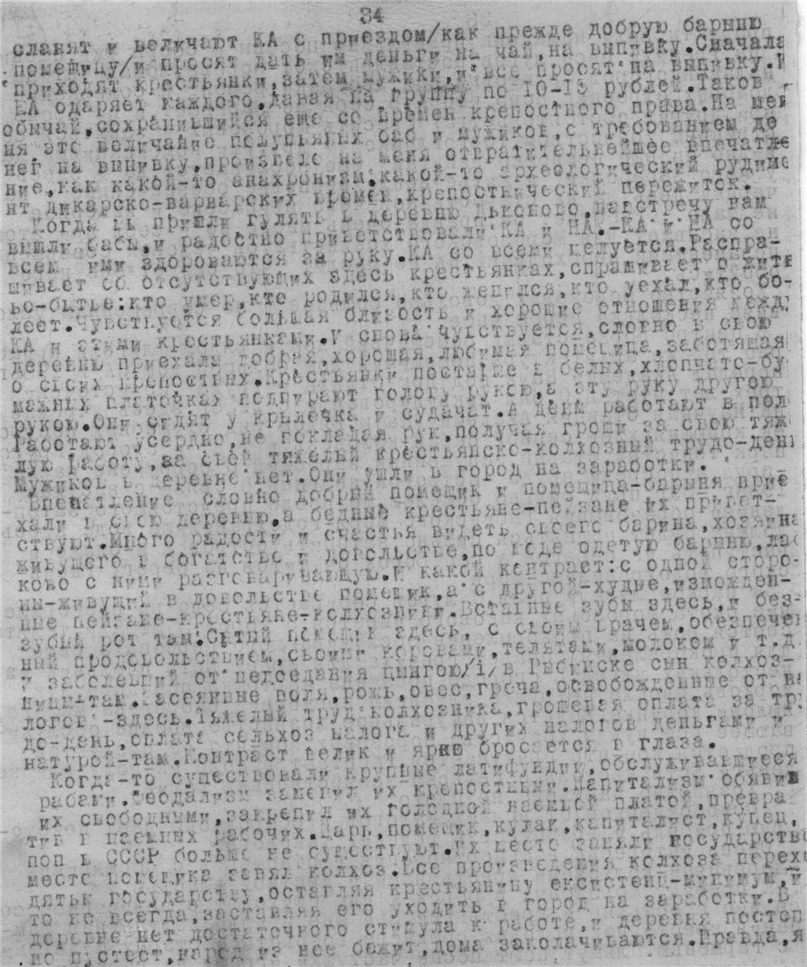 34
славят и величают КА с приездом/как прежде добрую барыню
помещицу/и просят дать им деньги на чай,на выпивку.Сначала
приходят крестьянки,затем мужики,и все просят на выпивку.И
КА одаряет каждого,давая на группу по 10-15 рублей.Таков
обычай,сохранившийся еще со времен крепостного права.На ме
ня это величание полупьяных баб и мужиков,с требованием де
нег на выпивку,произвело на меня отвратительнейшее впечатле
ние,как какой-то анахронизм,какой-то археологический рудиме
нт дикарско-варварских времен,крепостнический пережиток.
Когда мы пришли гулять в деревню Дьяково,навстречу нам
вышли бабы,и радостно приветствовали КА и НА.-КА и НА со
всеми ими здороваются за руку.КА со всеми целуется.Распра-
шивает об отсутствующих здесь крестьянках,спрашивает о жить
ье-бытье:кто умер,кто родился,кто женился,кто уехал,кто бо-
леет.Чувствуется большая близость и хорошие отношения между
КА и этими крестьянками.И снова чувствуется,словно в свою
деревню приехала добрая,хорошая,любимая помещица,заботящая
о своих крепостных.Крестьянки постарше в белых,хлопчато-бу
мажных платочках подпирают голову рукою,а эту руку другою
рукою.Они сидят у крылечка и судачат.А днем работают в поле
Работают усердно,не покладая рук,получая гроши за свою тяже
лую работу,за свой тяжелый крестьянско-колхозный трудо-день
Мужиков в деревне нет.Они ушли в город на заработки.
Впечатление словно добрый помещик и помещица-барыня прие
хали в свою деревню,а бедные крестьяне-пейзане их привет-
ствуют.Много радости и счастья видеть своего барина,хозяина
живущего в богатстве и довольстве,по моде одетую барыню,лас
ково с ними разговаривающую.И какой контраст:с одной сторо-
ны-живущий в довольстве помещик,а с другой-худые,изможден-
ные пейзане-крестьяне-колхозники.Вставные зубы здесь,и без-
зубый рот там.Сытый помещик здесь, с своим врачем,обеспечен
ный продовольствием,своими коровами,телятами,молоком и т.д.
и заболевший от недоедания цынгою/!/в Рыбинске сын колхоз-
ницы-там.Засеянные поля,рожь,овес,греча,освобожденные от на
логов-здесь.Тяжелый труд колхозника,грошевая оплата за тру
до-день,оплата сельхоз налога и других налогов деньгами и
натурой-там.Контраст велик и ярко бросается в глаза.
Когда-то существовали крупные латифундии,обслуживавшиеся
рабами.Феодализм заменил их крепостными.Капитализм обявил
их свободными,закрепил их голодной наемной платой,превра
тив в наемных рабочих.Царь,помещик,кулак,капиталист,купец,
поп в СССР больше не существуют.Их место заняло государство
место помещика занял колхоз.Все произведения колхоза перехо
дятьк государству,оставляя крестьянину екзистенц-минимум,и
то не всегда,заставляя его уходить в город на заработки.В
деревне нет достаточного стимула к работе,и деревня постеп
но пустеет,народ из нее бежит,дома заколачиваются.Правда,я